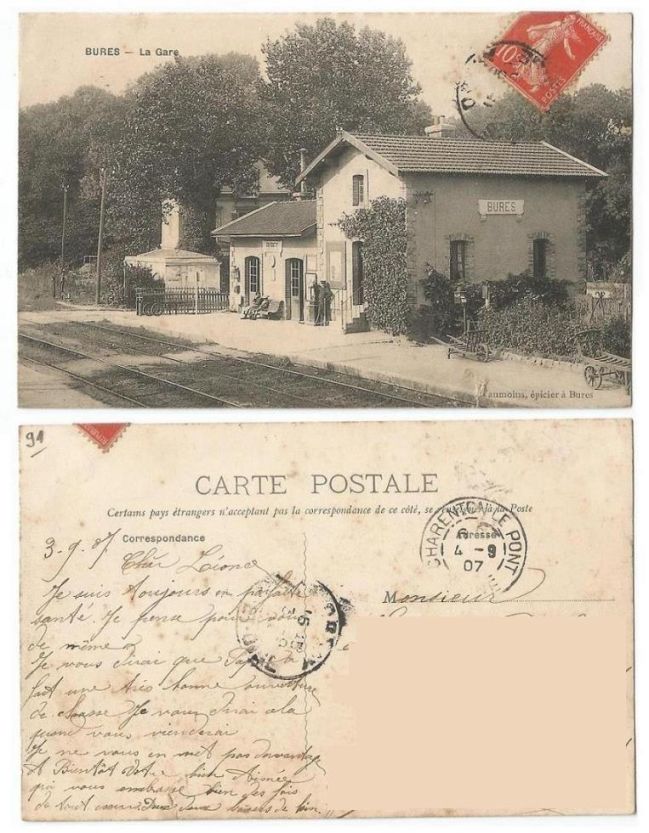 BURES — La Gare
10
POSTES
BURES
BURES
épicier à Bures
91
CARTE POSTALE
Certains pays étrangers n'acceptant pas la correspondance de ce côté, se à la Poste
Correspondance
Adresse
CHARENTON LE PONT
4 - 9
07
3-9-07
Cher Léonce
Monsieur
Je suis toujours en parfaite
santé. Je pense pour vous
de même
Je vous dirai que
fait une très bonne ouverture
de chasse Je vous dirai cela
quand vous viendrai
Je ne vous en met pas davantage
A Bientôt Votre bien Aimée
qui vous embrasse bien des fois
de tout deux baisers de